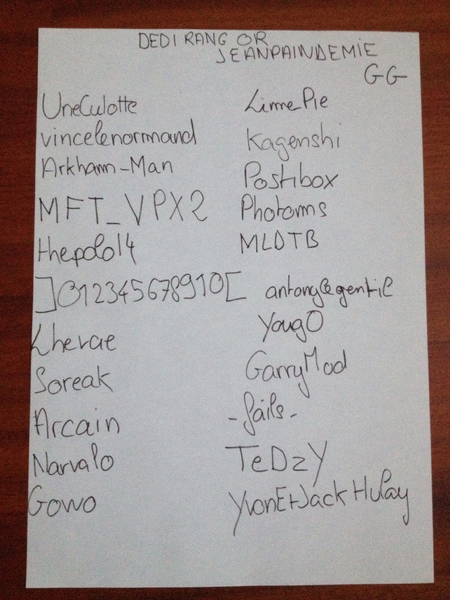 DEDI RANG OR
JEANPAINDEMIE
GG
UneCulotte
vincelenormand
Arkham-Man
MFT_VPX2
thepolo14
]012345678910[
Lherae
Soreak
Arcain
Narvalo
Gowo
LimePie
Kagenshi
Postibox
Photoms
MLDTB
antonylegentil
YougO
GarryMod
-fails-
TeDzY